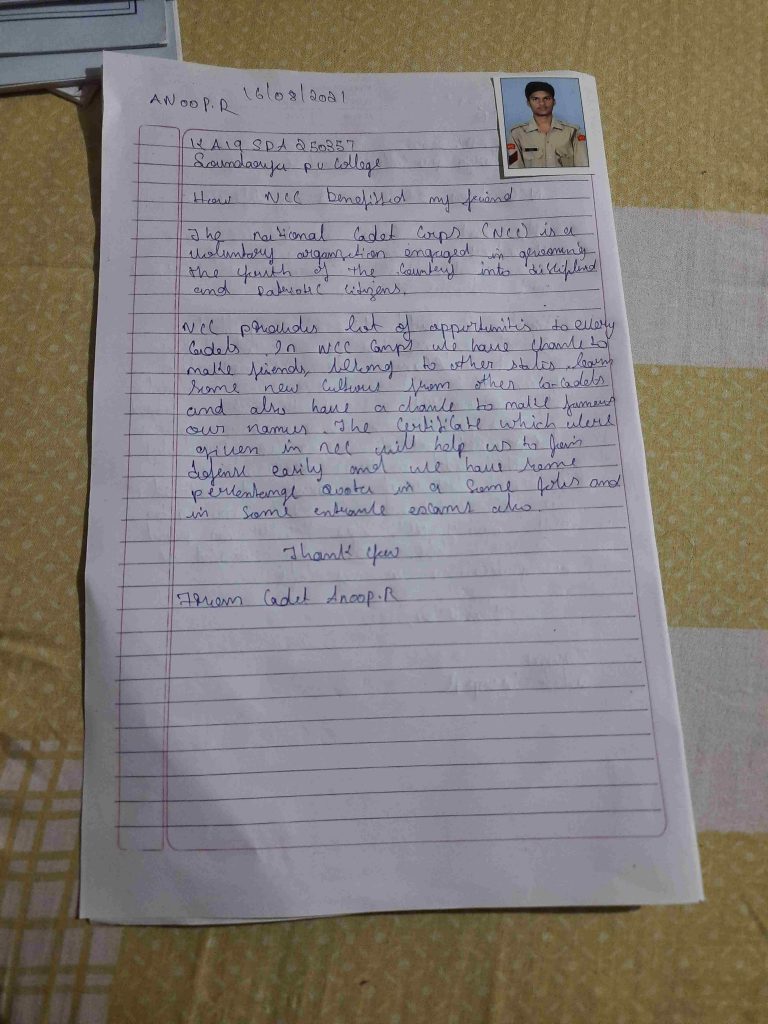 ANOOP.R 16/08/2021
KA19 SDA 250357
Soundarya pu college
How NCC benefitted my friend
The national Cadet Corps (NCC) is a
voluntary organization engaged in
the youth of the country into
and patriotic citizens.
NCC provides list of oppurtunitis to every
Cadets. In NCC Camps we have chance to
make friends, belong to other states, learn
some new cultures from other co-cadets
and also have a chance to make famous
our names. The Certificate which were
given in ncc will help us to join
defense easily and we have some
percentange quota in a some jobs and
in some entrance exams also.
Thank you
From Cadet Anoop.R